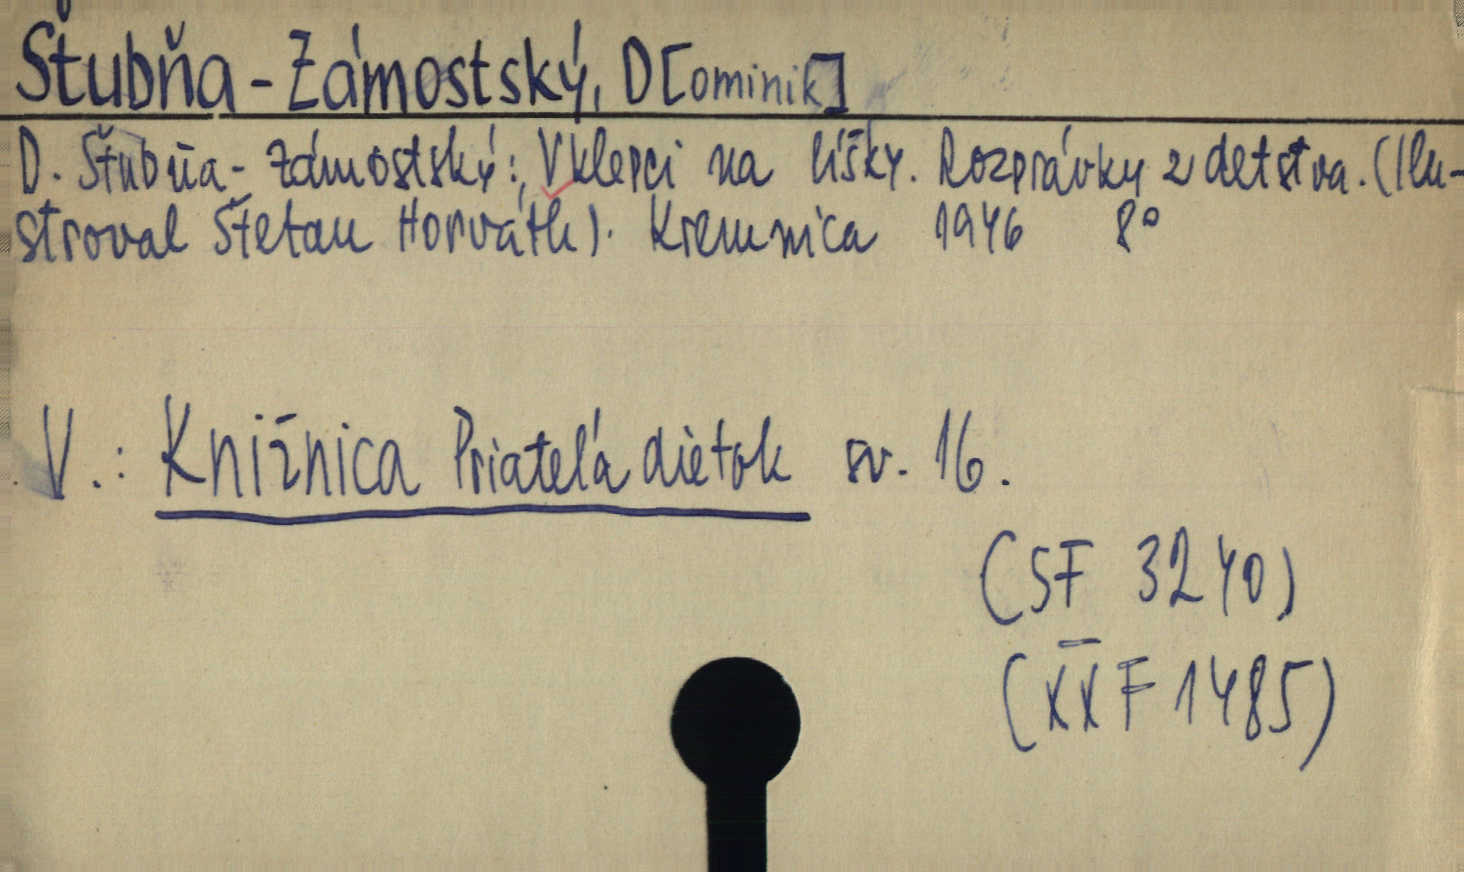 Štubňa-Zámostský, D[ominik]
D. Štubňa-Zámostský: V klepci na líšky. Rozprávky z detstva. (Ilu-
stroval Štefan Horváth). Kremnica 1946 8°
V.: Knižnica Priateľa dietok sv. 16.
(SF 3240)
(XX F 1485)